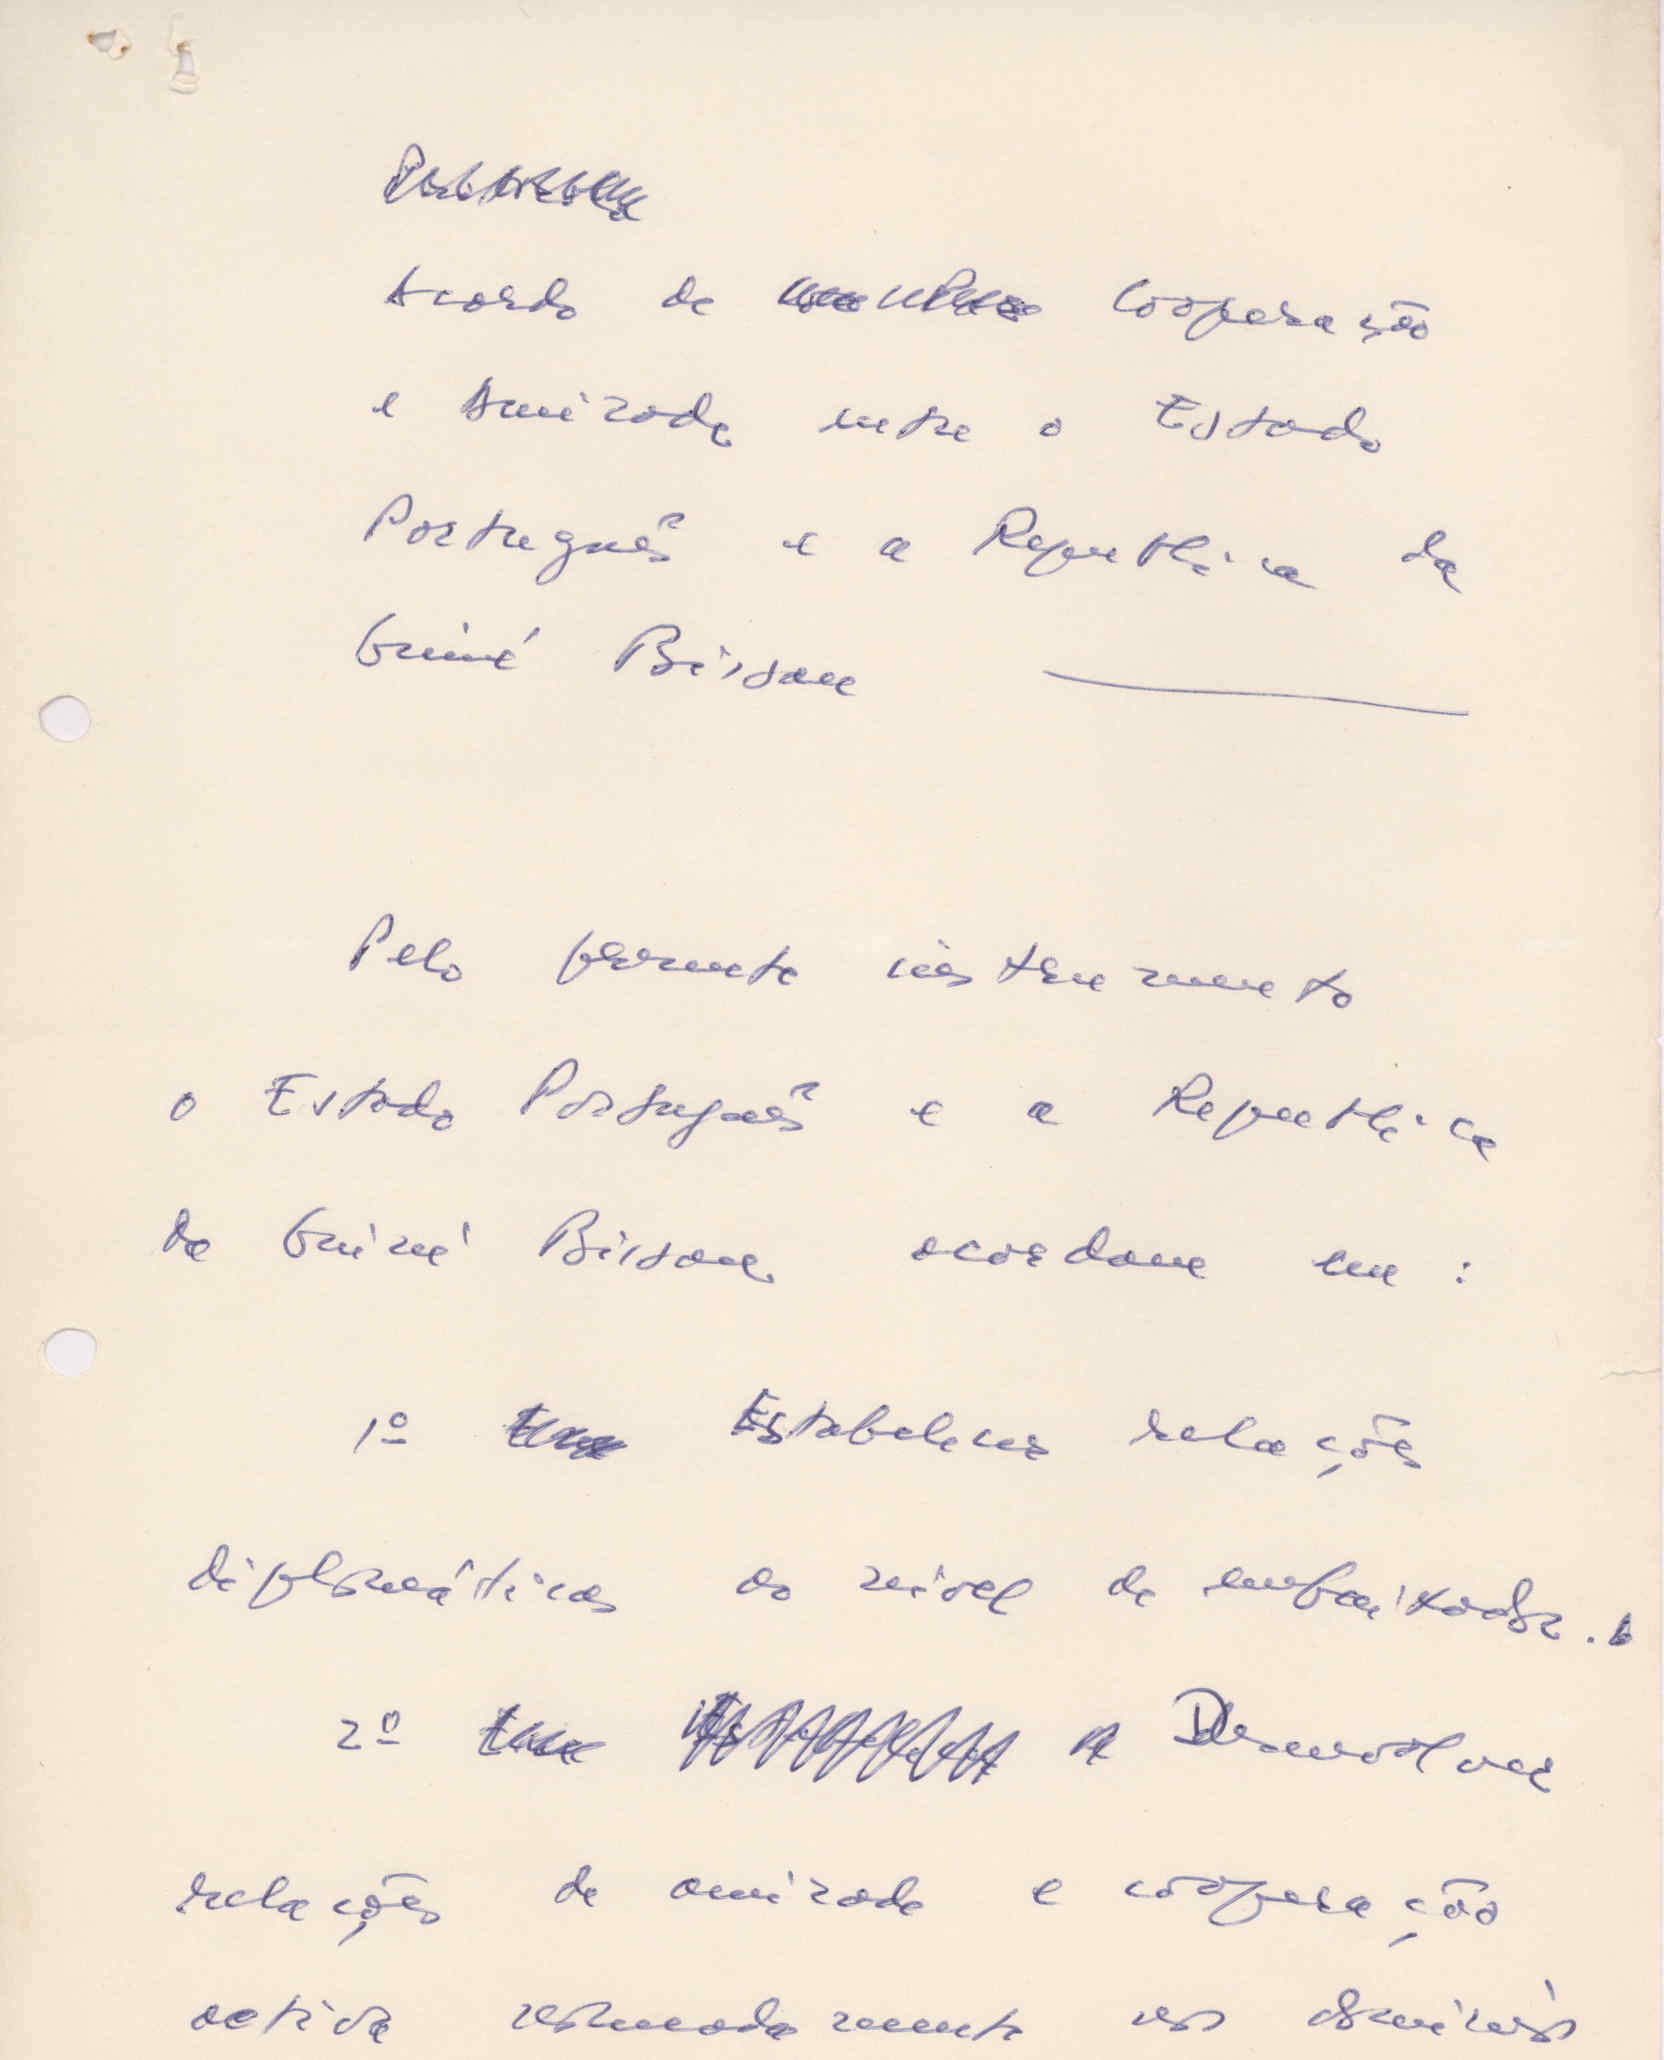 Acordo de Cooperação
e Amizade entre o Estado
Português e a Republica da
Guiné Bissau
Pelo presente instrumento
o Estado Português e a Republica
da Guiné Bissau acordam em :
1º Estabelecer relações
diplomáticas ao nível de embaixador.
2º Desenvolver
relações de amizade e cooperação
activa nomeadamente nos domínios